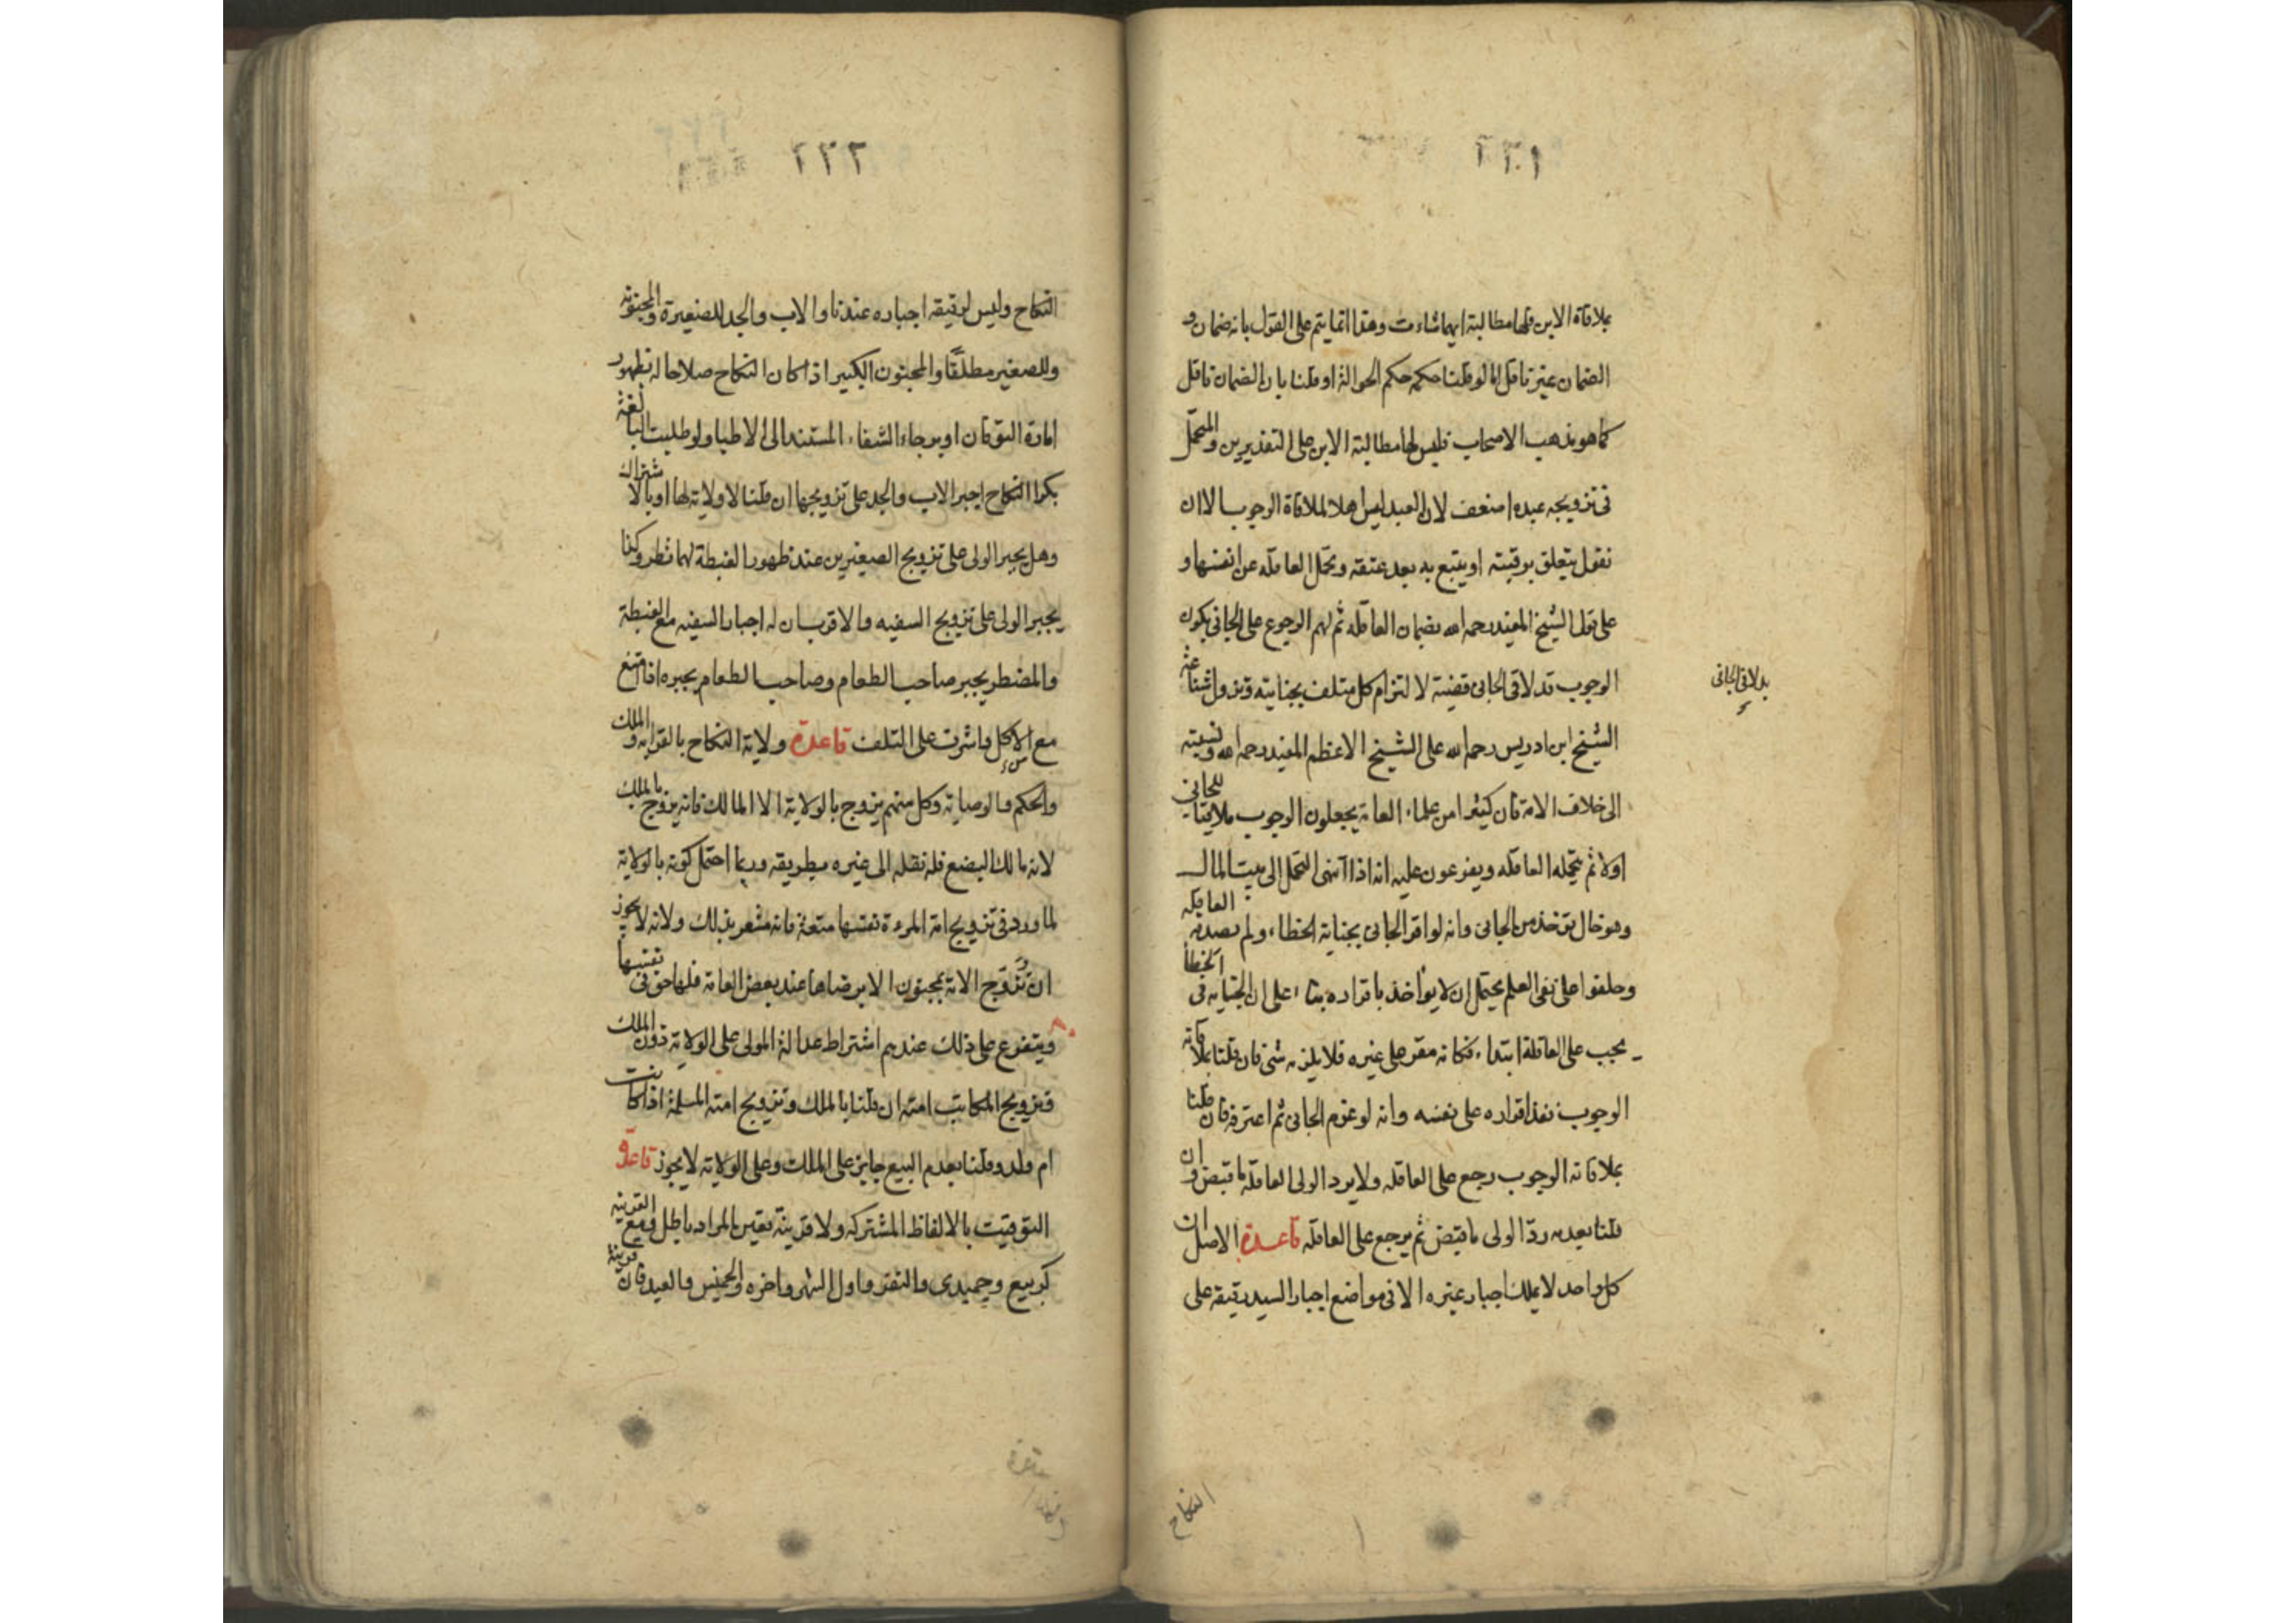 ٢٢١
بملاقاة الابن فلها مطالبة ايهما شاءت وهذا انما يتم على القول بانه ضمان و
الضمان غير ناقل اما لو قلنا حكمه حكم الحوالة او قلنا بان الضمان ناقل
كما هو مذهب الاصحاب فليس لها مطالبة الابن على التقديرين والتحمل
فى تزويجه عبده اضعف لان العبد ليس اهلا لملاقاة الوجوب الا ان
نقول يتعلق برقبته او يتبع به بعد عتقه وتحمل العاقله عن انفسها و
على قول الشيخ المفيد رحمه الله بضمان العاقله ثم لهم الرجوع على الجانى يكون
الوجوب قد لاقى الجانى قضية لالتزام كل متلف بجنايته وتزول شناعة
بدلاقى الجانى
الشيخ ابن ادريس رحمه الله على الشيخ الاعظم المفيد رحمه الله ونسبته
الى خلاف الامة فان كثيرا من علماء العامة يجعلون الوجوب ملاقيا للجانى
اولا ثم يتحمله العاقله ويفرعون عليه انه اذا انتهى التحمل الى بيت المال
وهو خال يؤخذ من الجانى وانه لو اقر الجانى بجناية الخطاء ولم تصدقه العاقله
وحلفوا على نفى العلم يحتمل ان لا يؤاخذ باقراره بناء على ان الجنايه فى الخطأ
يجب على العاقلة ابتداء فكانه مقر على غيره فلا يلزمه شئ فان قلنا بملاقاته
الوجوب نفذ اقراره على نفسه وانه لو غرم الجانى ثم اعترفه فان قلنا
بملاقاته الوجوب رجع على العاقله ولا يرد الولى العاقله ما قبض وان
قلنا بعدمه رد الولى ما قبض ثم يرجع على العاقله قاعدة الاصل ان
كل واحد لا يملك اجبار غيره الا فى مواضع اجبار السيد رقيقه على
النكاح
٢٢٢
النكاح وليس لرقيقه اجباره عندنا والاب والجد للصغيرة والمجنونه
وللصغير مطلقًا والمجنون الكبير اذا كان النكاح صلاحا له بظهور
امارة التوقان او برجاء الشفاء المستند الى الاطبا ولو طلبت البالغة
بكرا النكاح اجبر الاب والجد على تزويجها ان قلنا لا ولاية لها او بالاشتراك
وهل يجبر الولى على تزويج الصغيرين عند ظهور الغبطة لهما نظر وكذا
يجبر الولى على تزويج السفيه والاقرب ان له اجبار السفيه مع الغبطة
والمضطر يجبر صاحب الطعام وصاحب الطعام يجبره اذا امتنع
مع الاكل واشرف على التلف قاعدة ولاية النكاح بالقرابه والملك
والحكم والوصاية وكل منهم يزوج بالولاية الا المالك فانه يزوج بالملك
لانه مالك البضع فله نقله الى غيره بطريقه وربما احتمل كونه بالولاية
لما ورد فى تزويج امة المرءة نفسها متعة فانه مشعر بذلك ولانه لا يجوز
ان تزوج الامة بمجنون الا برضاها عند بعض العامة فلها حق فى نفسها
ويتفرع على ذلك عندهم اشتراط عدالة المولى على الولاية دون الملك
وتزويج المكاتب امته ان قلنا بالملك وتزويج امته المسلمة اذا كانت
ام ولد وقلنا بعدم البيع جايز على الملك وعلى الولاية لا يجوز قاعدة
التوقيت بالالفاظ المشتركه ولا قرينة تعين المراد باطل ومع القرينه
كربيع وجميدى والنفر واول الشهر واخره والخميس والعيد فان قرينة